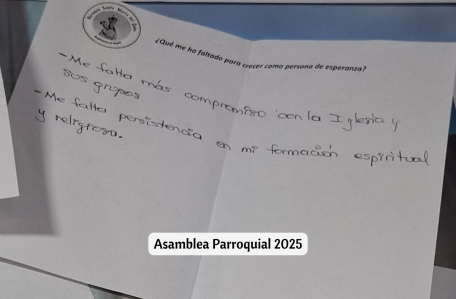 ¿Qué me ha faltado para crecer como persona de esperanza?
- Me falta más compromiso con la Iglesia y
sus grupos
- Me falta persistencia en mi formación espiritual
y religiosa.
Asamblea Parroquial 2025